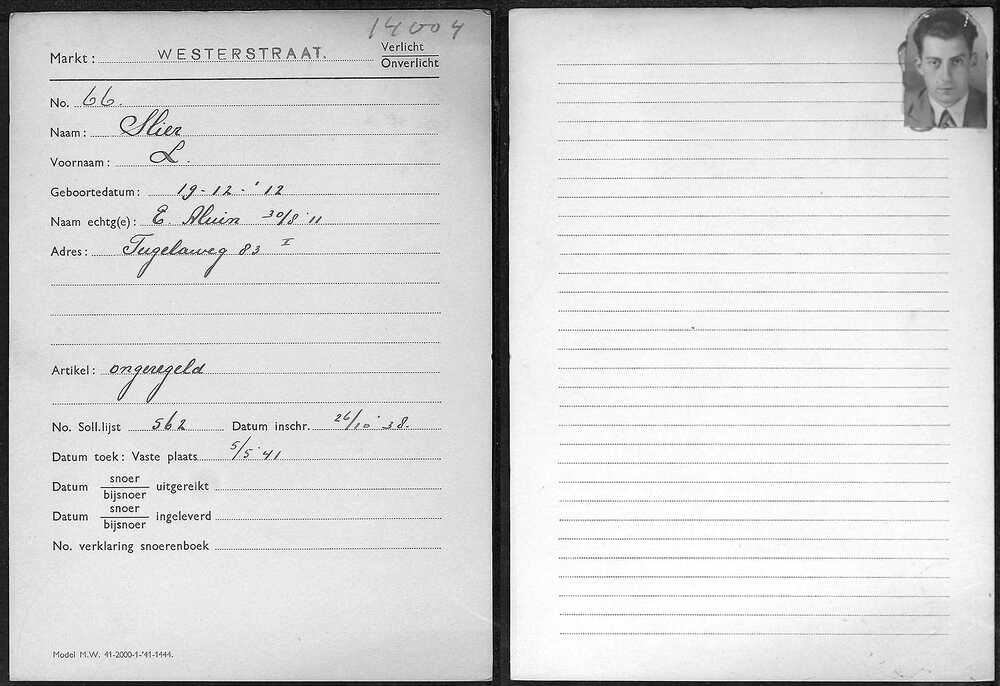 14004
Markt: WESTERSTRAAT. Verlicht
Onverlicht
No. 66.
Naam: Slier
Voornaam: L.
Geboortedatum: 19-12-'12
Naam echtg(e): E. Aluin 30/8 '11
Adres: Tugelaweg 83 I
Artikel: ongeregeld
No. Soll.lijst 562 Datum inschr. 26/10 '38.
Datum toek: Vaste plaats 5/5 '41
Datum snoer uitgereikt
bijsnoer
Datum snoer ingeleverd
bijsnoer
No. verklaring snoerenboek
Model M.W. 41-2000-1-'41-1444.